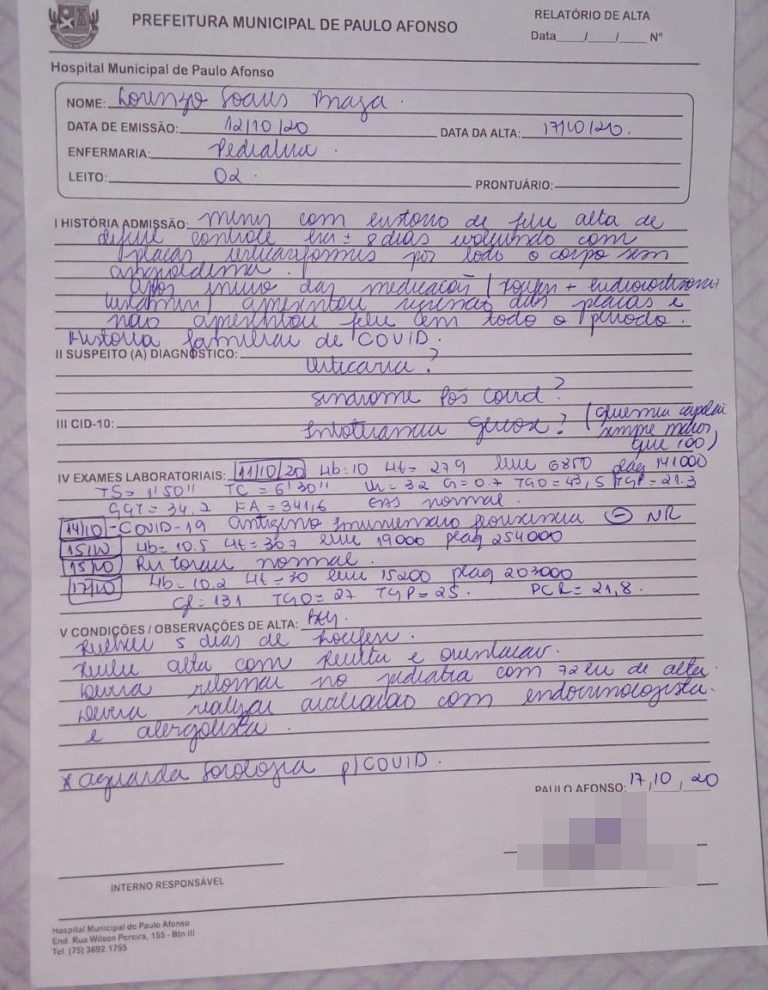 PREFEITURA MUNICIPAL DE PAULO AFONSO
RELATÓRIO DE ALTA
Data___/___/___ Nº
Hospital Municipal de Paulo Afonso
NOME: Lorenzo Soares
DATA DE EMISSÃO: 12/10/20 DATA DA ALTA: 17/10/20.
ENFERMARIA: Pediatria.
LEITO: 02. PRONTUÁRIO:
I HISTÓRIA ADMISSÃO: menor com história de febre alta de
difícil controle há ± 8 dias evoluindo com
placas urticariformes por todo o corpo sem
angioedema.
Após início das medicação (+
) apresentou regressão das placas e
não apresentou febre em todo o período.
História familiar de COVID.
II SUSPEITO (A) DIAGNÓSTICO:
Urticaria?
Síndrome Pós Covid?
III CID-10:
Intolerancia glicose? (glicemia capilar
sempre maior
que 100)
IV EXAMES LABORATORIAIS: 11/10/20 Hb=10 Ht=27.9 leuc 6850 plaq 141000
TS=1'50'' TC=6'30'' Ur=32 Cr=0.7 TGO=43,5 TGP=21.3
GGT=34,2 FA=341,6 EAS normal.
14/10 - COVID-19 antígeno (-) NR
15/10 Hb=10.5 Ht=30.7 leuc 19000 plaq 254000
15/10 Rx torax normal.
17/10 Hb=10.2 Ht=30 leuc 15200 plaq 203000
131 TGO=27 TGP=25. PCR=21,8.
V CONDIÇÕES / OBSERVAÇÕES DE ALTA: BEG.
Recebeu 5 dias de
Recebe alta com receita e orientacao.
Devera retornar no pediatra com 72h de alta.
Devera realizar avaliacao com endocrinologista
e alergolista.
* aguarda sorologia p/ COVID.
PAULO AFONSO: 17/10/20
INTERNO RESPONSÁVEL
Hospital Municipal de Paulo Afonso
End. Rua Wilson Pereira, 155 - Btn III
Tel. (75) 3692 1755